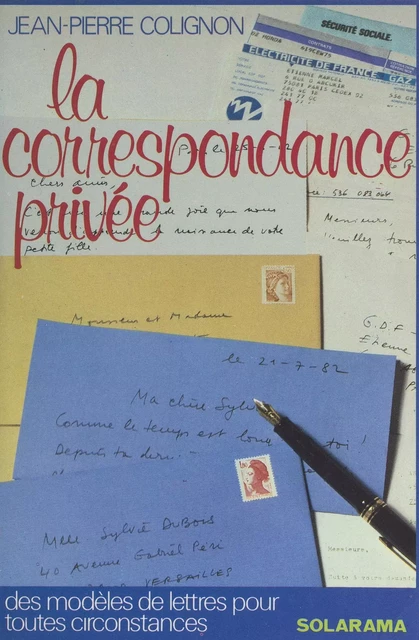 JEAN-PIERRE COLIGNON
SÉCURITÉ SOCIALE.
ELECTRICITE DE FRANCE GAZ
ETIENNE MARCEL
75003 PARIS CEDEX 02
la
correspondance
privée
Chers amis,
C'est une grande joie que nous
la naissance de votre
petite fille.
Messieurs,
Monsieur et Madame
G.D.F
Etienne
le 21-7-82
Ma chère Sylv
Comme le temps est toi!
Depuis ta
Melle Sylvie DUBOIS
40 Avenue Gabriel Péri
VERSAILLES
Messieurs,
des modèles de lettres pour
toutes circonstances
SOLARAMA